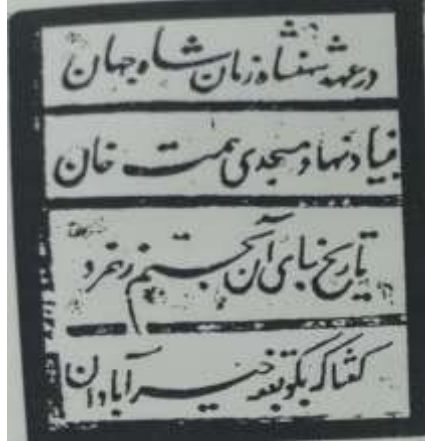 در عهد شهنشاه زمان شاه جهان
بنیاد نهاد مسجدی همت خان
تاریخ بنای آن بجستم ز خرد
گفتا که بگو بقعه خیر آبادان